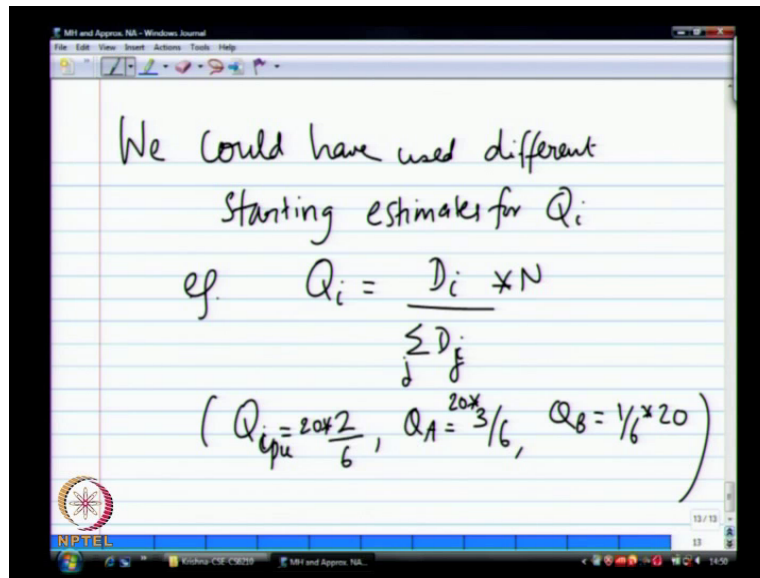 MH and Approx. NA - Windows Journal
File Edit View Insert Actions Tools Help
We could have used different
starting estimates for Qi
eg. Qi = Di * N
∑ Dj
j
( Qcpu = 20*2/6, QA = 20*3/6, QB = 1/6*20 )
13 / 13
13
NPTEL
Krishna-CSE-CS6210 MH and Approx. NA... 14:50